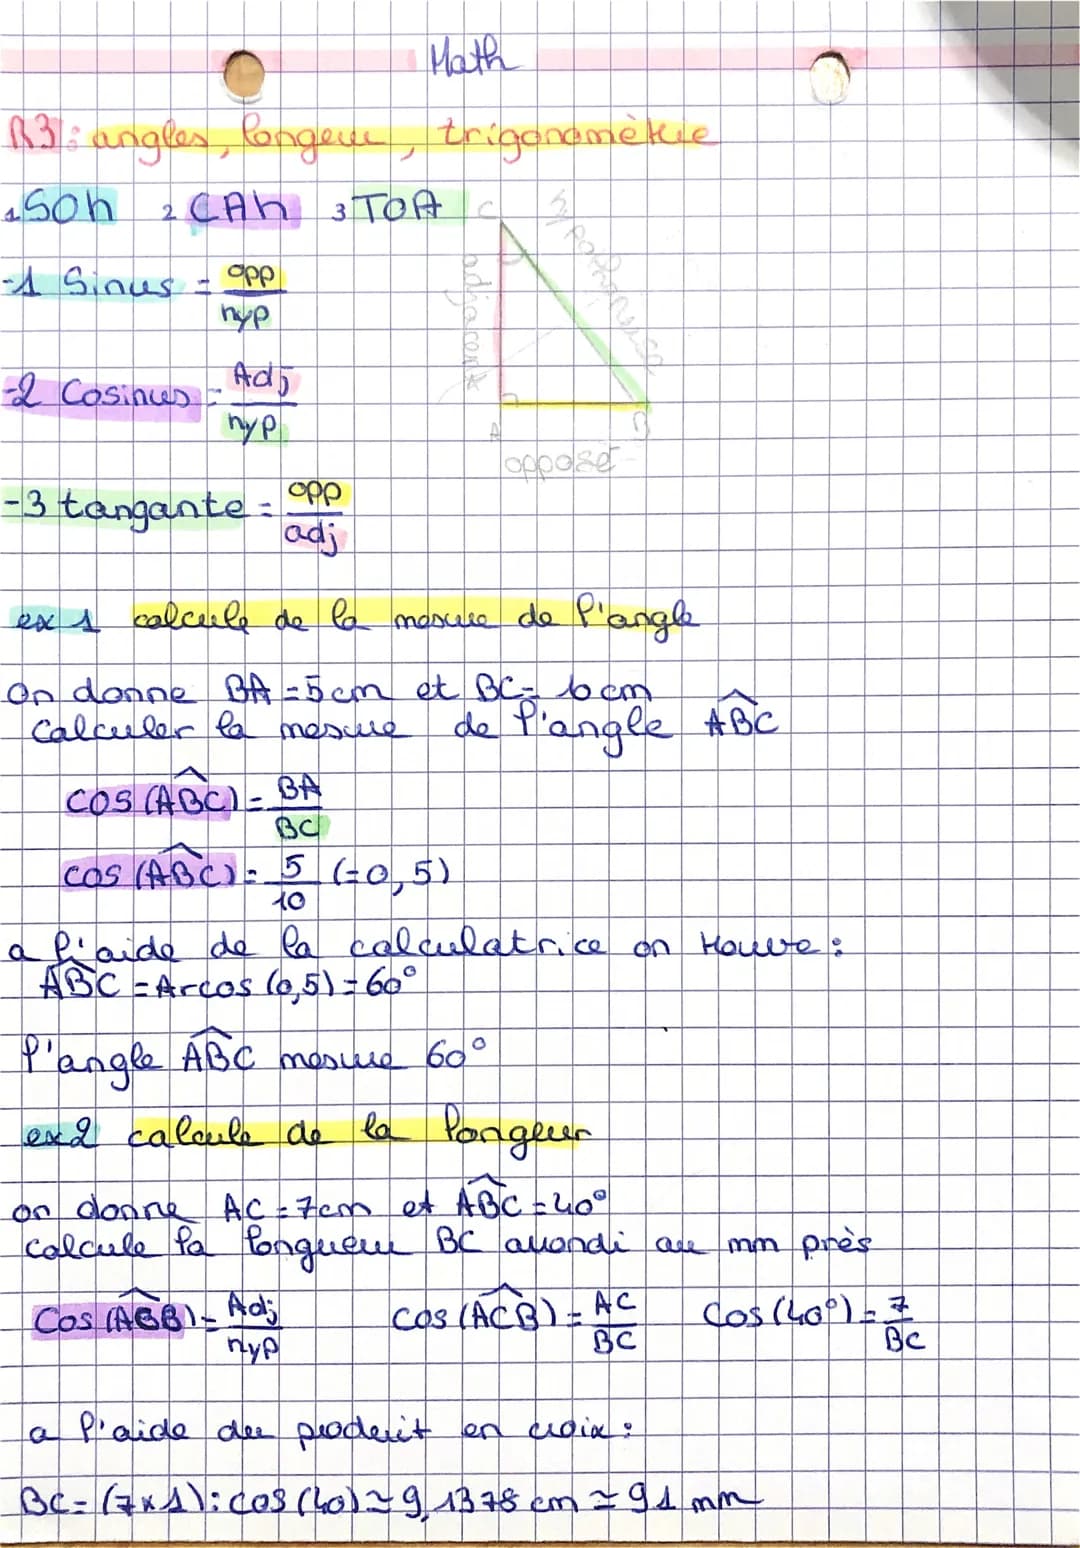 Math
R3: angles, longeur, trigonomètrie
1 SOh 2 CAh 3 TOA
C
hypothénuse
adjacent
A
B
opposé
-1 Sinus = opp
hyp
-2 Cosinus = Adj
hyp
-3 tangante = opp
adj
ex 1 calcule de la mesure de l'angle
on donne BA = 5 cm et BC = 6 cm
Calculer la mesure de l'angle ABC
COS (ABC) = BA
BC
cos (ABC) = 5 (=0,5)
10
a l'aide de la calculatrice on trouve :
ABC = Arcos (0,5) = 60°
l'angle ABC mesure 60°
ex2 calcule de la longeur
on donne AC = 7cm et ABC = 40°
calcule la longueur BC arrondi au mm près
Cos (ACB) = Adj cos (ACB) = AC Cos (40°) = 7
hyp BC BC
a l'aide du produit en croix :
BC = (7x1) : cos (40) ≃ 9,1378 cm ≃ 91 mm